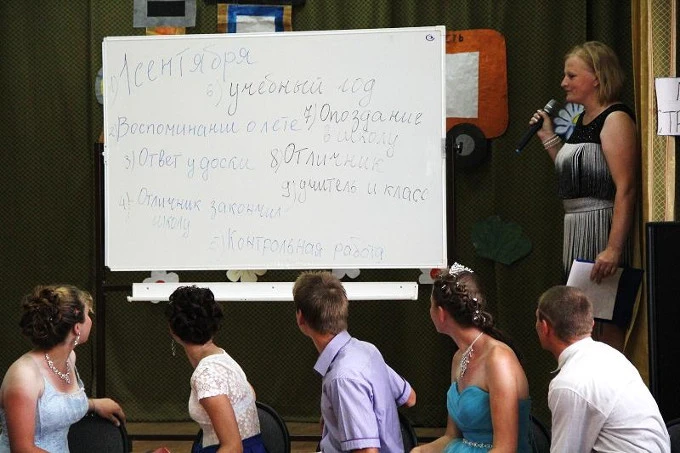 1) 1 сентября
6) учебный год
2) Воспоминание о лете
7) Опоздание
в школу
3) Ответ у доски
8) Отличник
9) учитель и класс
4) Отличник закончил
школу
5) Контрольная работа